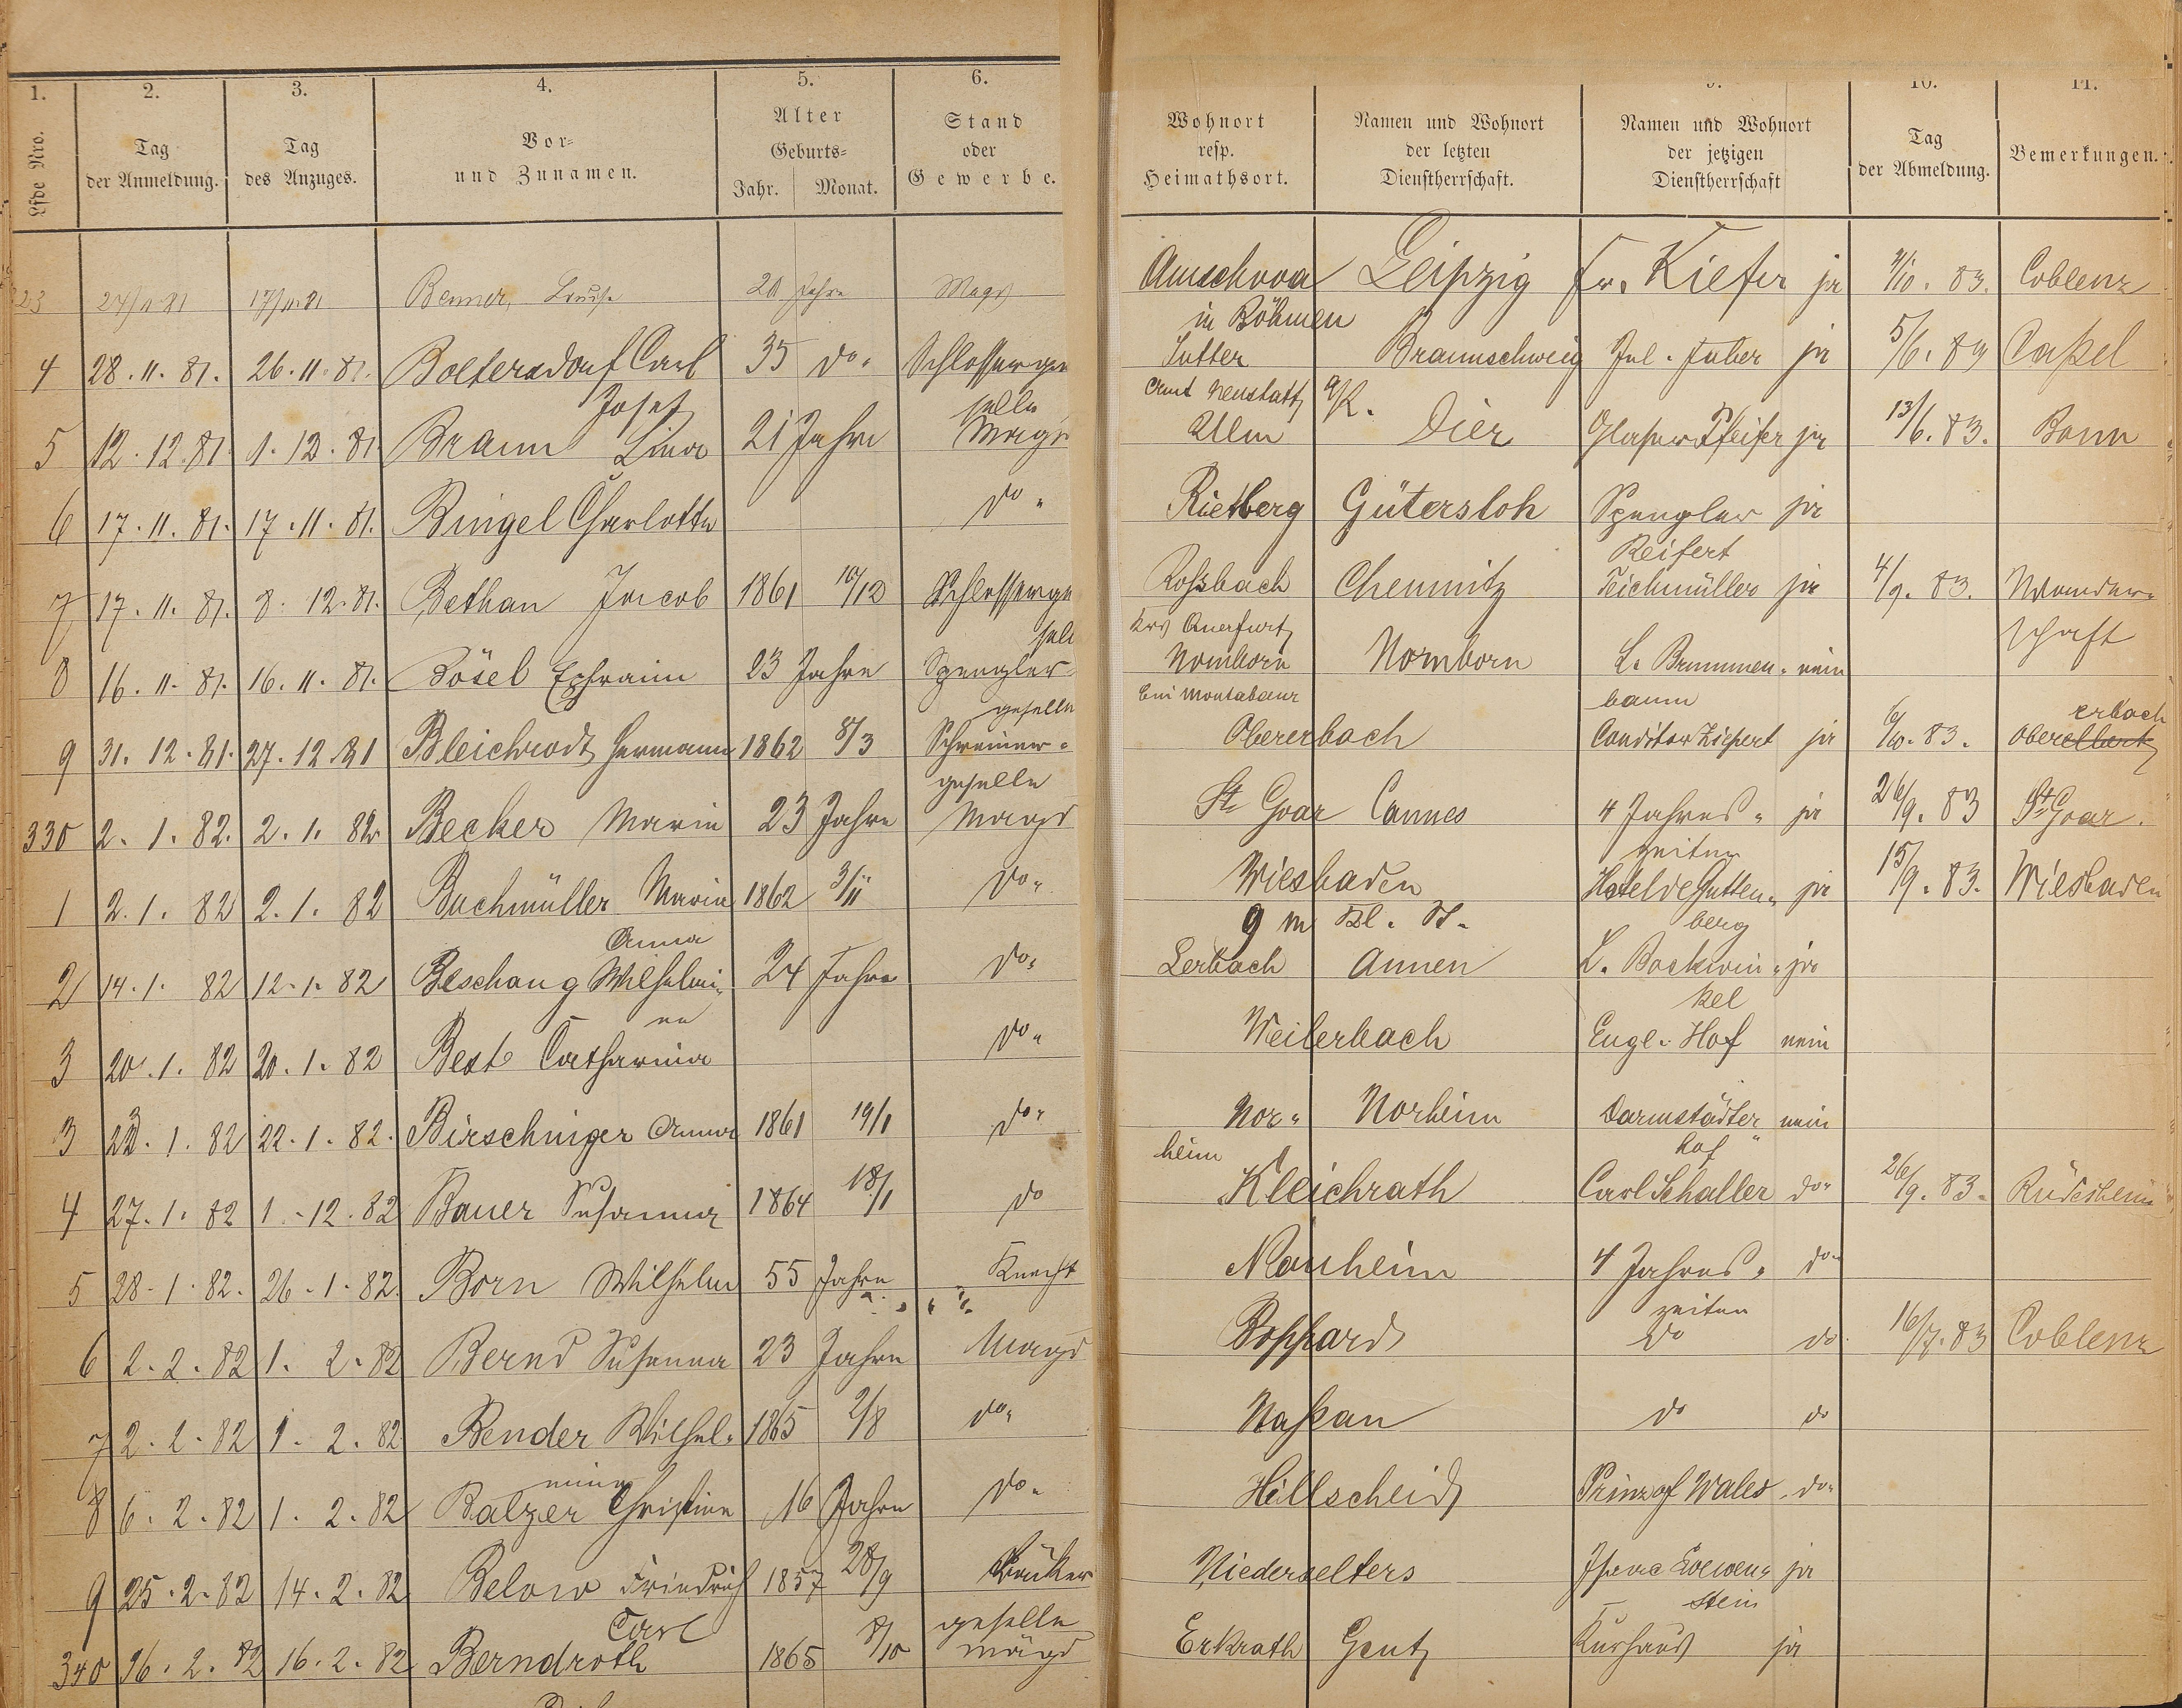 1. 2. 3. 4. 5. 6.
Lfde Nro. Tag der Anmeldung. Tag des Anzuges. Vor- und Zunamen. Alter Geburts- Jahr. Monat. Stand oder Gewerbe.
23 24/11 81 17/11 81 Benner, Louise 20 Jahre Magd
4 28. 11. 81. 26. 11. 81. Boltersdorf Carl 35 do. Schlosserge
Josef selle
5 12. 12. 81. 1. 12. 81. Braun Lina 21 Jahre Magd
6 17. 11. 81. 17. 11. 81. Bingel Charlotte do.
7 17. 11. 81. 8. 12. 81. Bethan Jacob 1861 10/12 Schlosserge
sell
8 16. 11. 81. 16. 11. 81. Bösel Ephraim 23 Jahre Spengler-
geselle
9 31. 12. 81. 27. 12. 81 Bleichrodt Hermann 1862 8/3 Schreiner-
geselle
330 2. 1. 82. 2. 1. 82 Becker Maria 23 Jahre Magd
1 2. 1. 82 2. 1. 82 Buchmüller Maria 1862 3/11 do.
Anna
2 14. 1. 82 12. 1. 82 Beschang Wilhelmi- 24 Jahre do.
ne
3 20. 1. 82 20. 1. 82 Best Catharina do.
3 22. 1. 82 22. 1. 82. Birschinger Anna 1861 19/1 do.
4 27. 1. 82 1. 12. 82 Bauer Susanna 1864 18/1 do
5 28. 1. 82. 26. 1. 82. Born Wilhelm 55 Jahre Knecht
6 2. 2. 82 1. 2. 82 Bernd Susanna 23 Jahre Magd
7 2. 2. 82 1. 2. 82 Bender Wilhel- 1865 2/8 do.
mina
8 6. 2. 82 1. 2. 82 Balzer Christine 16 Jahre do.
9 25. 2. 82 14. 2. 82 Below Friedrich 1857 28/9
Carl geselle
340 16. 2. 82 16. 2. 82 Berndroth 1865 8/10 magd
10. 11.
Wohnort resp. Heimathsort. Namen und Wohnort der letzten Dienstherrschaft. Namen und Wohnort der jetzigen Dienstherrschaft Tag der Abmeldung. Bemerkungen.
Leipzig Fr. Kiefer ja 9/10. 83. Coblenz
in Böhmen
Lutter Braunschweig Jul. ja 5/6. 84 Caßel
Amt Neustatt a/R.
Ulm Dier Glaser Pfeifer ja 13/6. 83. Bonn
Rietberg Gütersloh Spengler ja
Reifert
Roßbach Chemnitz Teichmüller ja 4/9. 83. Wander-
Krs Querfurt schaft
Nomborn Nomborn L. Brummen- nein
bei Montabaur baum
Obererbach Conditor ja 6/10. 83. Oberelbert
erbach
St Goar Cannes 4 Jahres- ja 26/9. 83 St Goar.
zeiten
Wiesbaden Hotel de Gutten- ja 15/9. 83. Wiesbaden
9 m Bl. St. berg
Lerbach Annen L. Bockwin- ja
kel
Weilerbach Engl. Hof nein
Nor- Norheim Darmstädter nein
heim hof
Kleichrath Carl Schaller do. 26/9. 83. Rüdesheim
Nauheim 4 Jahres- do.
zeiten
Boppard do do. 16/7. 83 Coblenz
Naßau do do
Hillscheid Prinz of Wales do.
Niederselters Isaac Loewen- ja
stein
Erkrath Gent Kurhaus ja